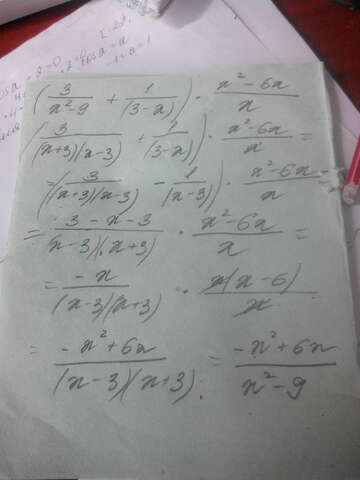 (3/(x²-9) + 1/(3-x)) · (x²-6x)/x
(3/((x+3)(x-3)) + 1/(3-x)) · (x²-6x)/x =
= (3/((x+3)(x-3)) - 1/(x-3)) · (x²-6x)/x =
= (3-x-3)/((x-3)(x+3)) · (x²-6x)/x =
= -x/((x-3)(x+3)) · x(x-6)/x
= (-x²+6x)/((x-3)(x+3)) = (-x²+6x)/(x²-9)